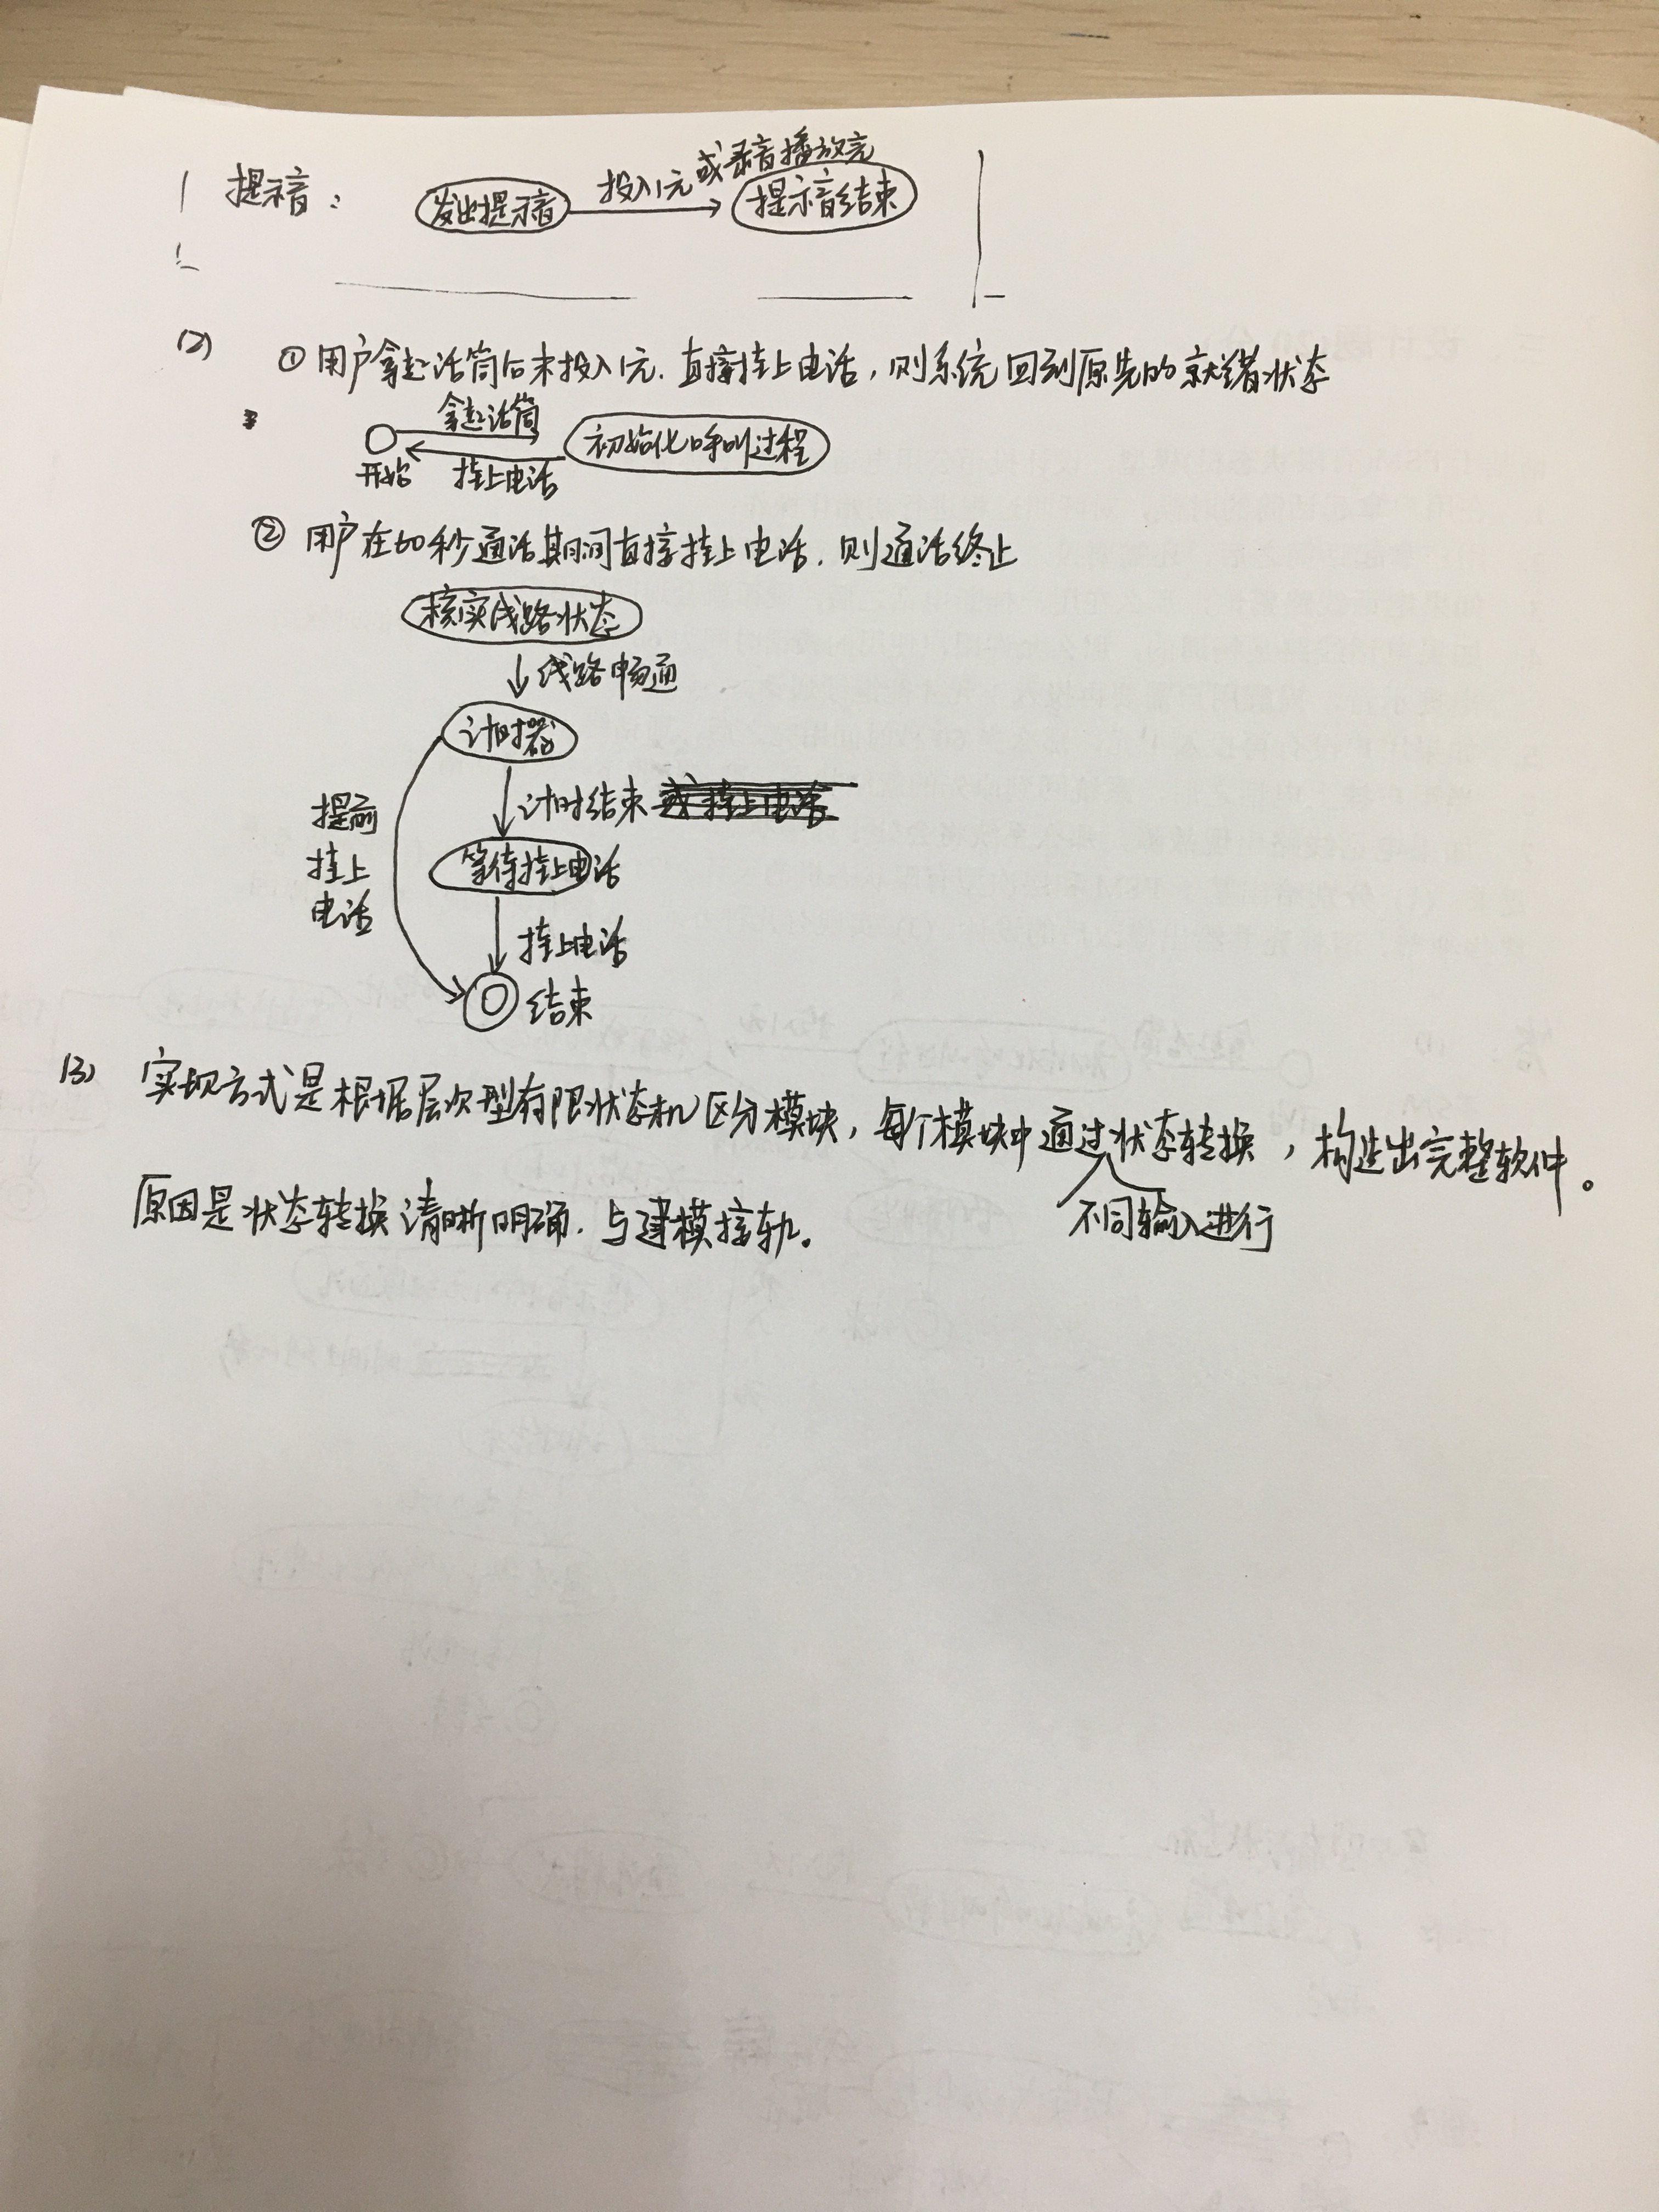 提示音：
发出提示音
投入1元 或录音播放完
提示音结束
(2)
① 用户拿起话筒后未投入1元，直接挂上电话，则系统回到原先的就绪状态
拿起话筒
初始化呼叫过程
开始
挂上电话
② 用户在60秒通话期间直接挂上电话，则通话终止
核实线路状态
线路畅通
计时器
计时结束
提前
挂上
电话
等待挂上电话
挂上电话
结束
(3) 实现方式是根据层次型有限状态机区分模块，每个模块中通过状态转换，构造出完整软件。
不同输入进行
原因是状态转换清晰明确，与建模接轨。